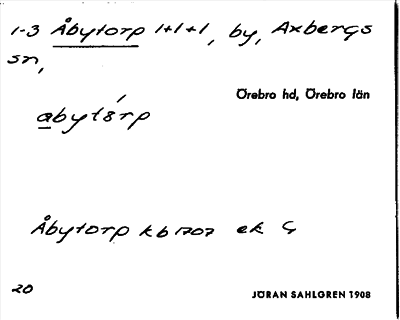 1-3 Åbytorp 1+1+1, by, Axbergs
sn,
Örebro hd, Örebro län
abyt8́rp
Åbytorp kb 1707 ek G
20
JÖRAN SAHLGREN 1908